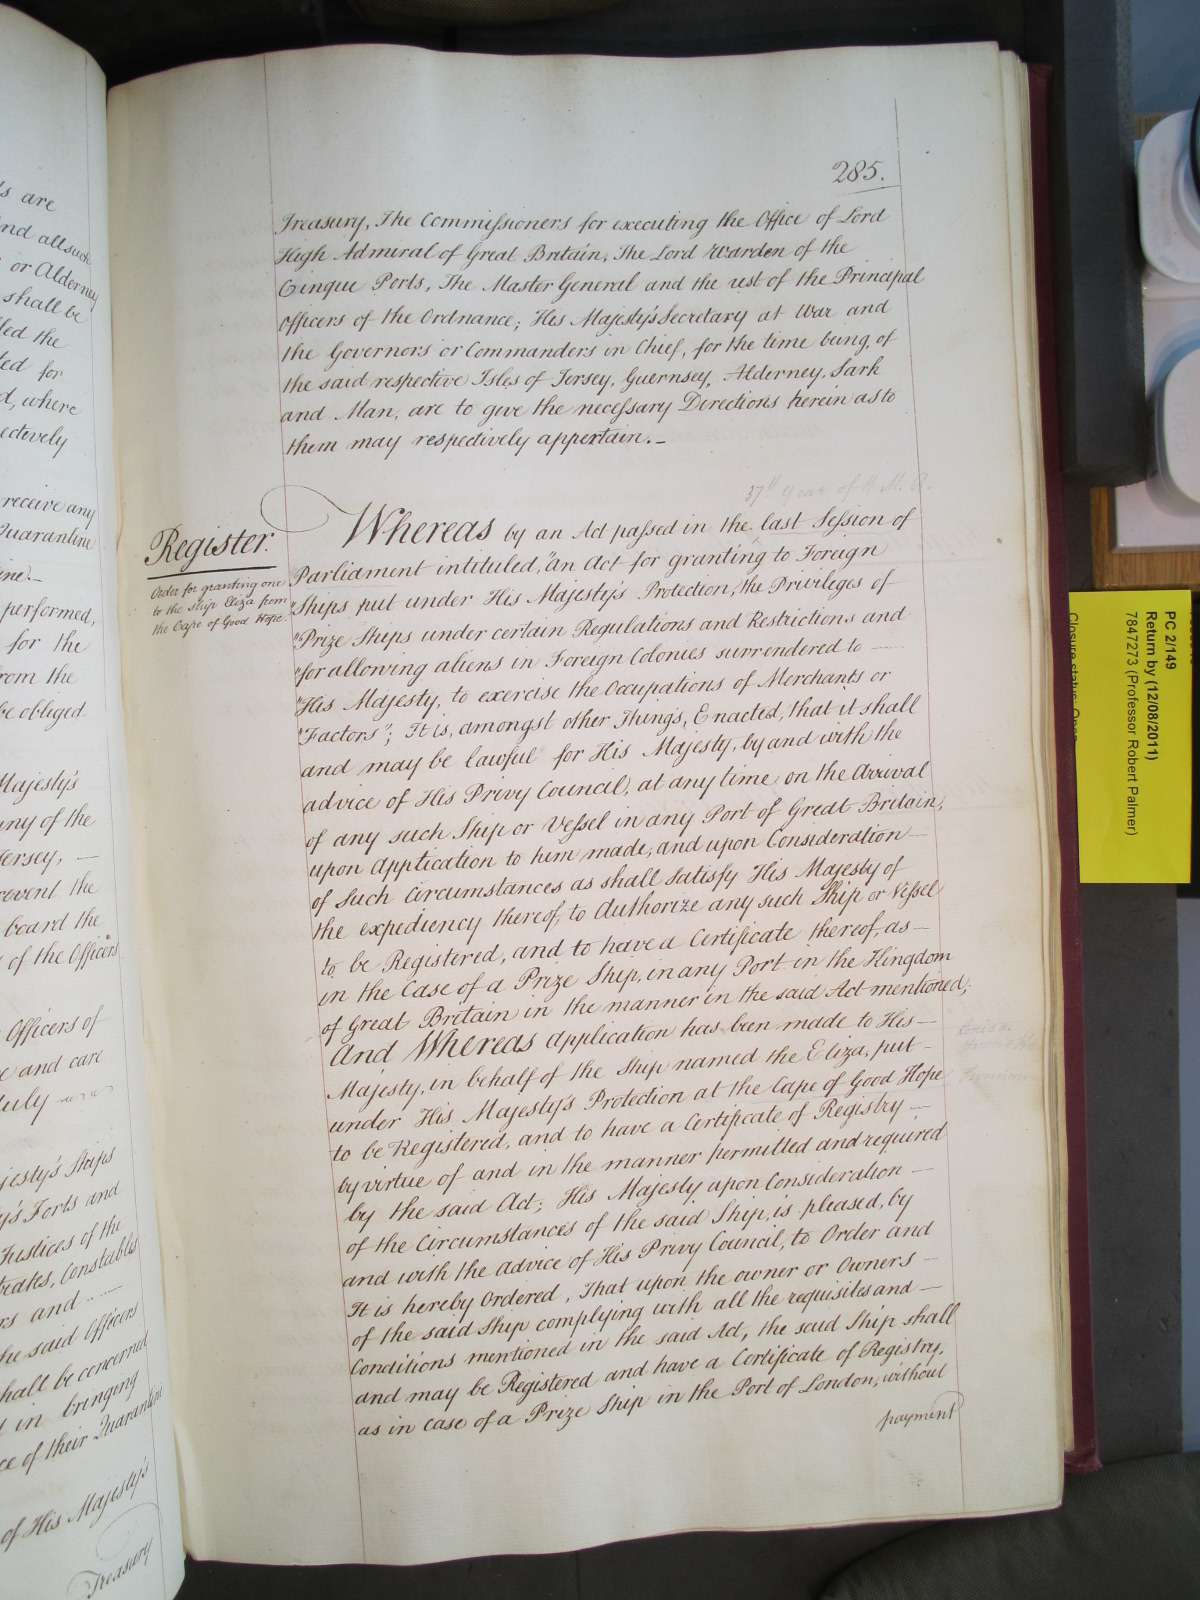 s are
nd all such
or Alderney
shall be
led the
ted for
d, where
ectively
receive any
Quarantine
ine._
performed,
for the
rom the
be obliged
Majesty's
any of the
Jersey, —
revent the
board the
of the Officers
Officers of
e and care
July
ajesty's Ships
y's Forts and
Justices of the
trates, Constables
rs and
the said Officers
shall be concerned
d in bringing
ce of their Quarantine
of His Majesty's
Treasury
285.
Treasury, The Commissioners for executing the Office of Lord
High Admiral of Great Britain, The Lord Warden of the
Cinque Ports, The Master General and the rest of the Principal
Officers of the Ordnance; His Majesty's Secretary at War and
the Governors or Commanders in Chief, for the time being, of
the said respective Isles of Jersey, Guernsey, Alderney, Sark
and Man, are to give the necessary Directions herein as to
them may respectively appertain._
37th year of H. M. R.
Register.
Order for granting one
to the Ship Eliza from
the Cape of Good Hope.
Whereas by an Act passed in the last Session of
Parliament intituled, "an Act for granting to Foreign
"Ships put under His Majesty's Protection, the Privileges of
"Prize Ships under certain Regulations and Restrictions and
"for allowing aliens in Foreign Colonies surrendered to —
"His Majesty, to exercise the Occupations of Merchants or
"Factors"; It is, amongst other Things, Enacted, that it shall
and may be lawful for His Majesty, by and with the
advice of His Privy Council, at any time on the Arrival
of any such Ship or Vessel in any Port of Great Britain,
upon Application to him made, and upon Consideration —
of Such Circumstances as shall satisfy His Majesty of
the expediency thereof, to Authorize any such Ship or Vessel
to be Registered, and to have a Certificate thereof, as —
in the Case of a Prize Ship, in any Port in the Kingdom
of Great Britain in the manner in the said Act mentioned;
And Whereas Application has been made to His —
Majesty, in behalf of the Ship named the Eliza, put —
under His Majesty's Protection at the Cape of Good Hope
to be Registered, and to have a Certificate of Registry —
by virtue of and in the manner permitted and required
by the said Act; His Majesty upon Consideration —
of the Circumstances of the said Ship, is pleased, by
and with the advice of His Privy Council, to Order and
It is hereby Ordered, That upon the owner or Owners —
of the said Ship complying with all the requisites and —
Conditions mentioned in the said Act, the said Ship shall
and may be Registered and have a Certificate of Registry,
as in case of a Prize Ship in the Port of London, without
payment
PC 2/149
Return by (12/08/2011)
7847273 (Professor Robert Palmer)
Closure status: Open